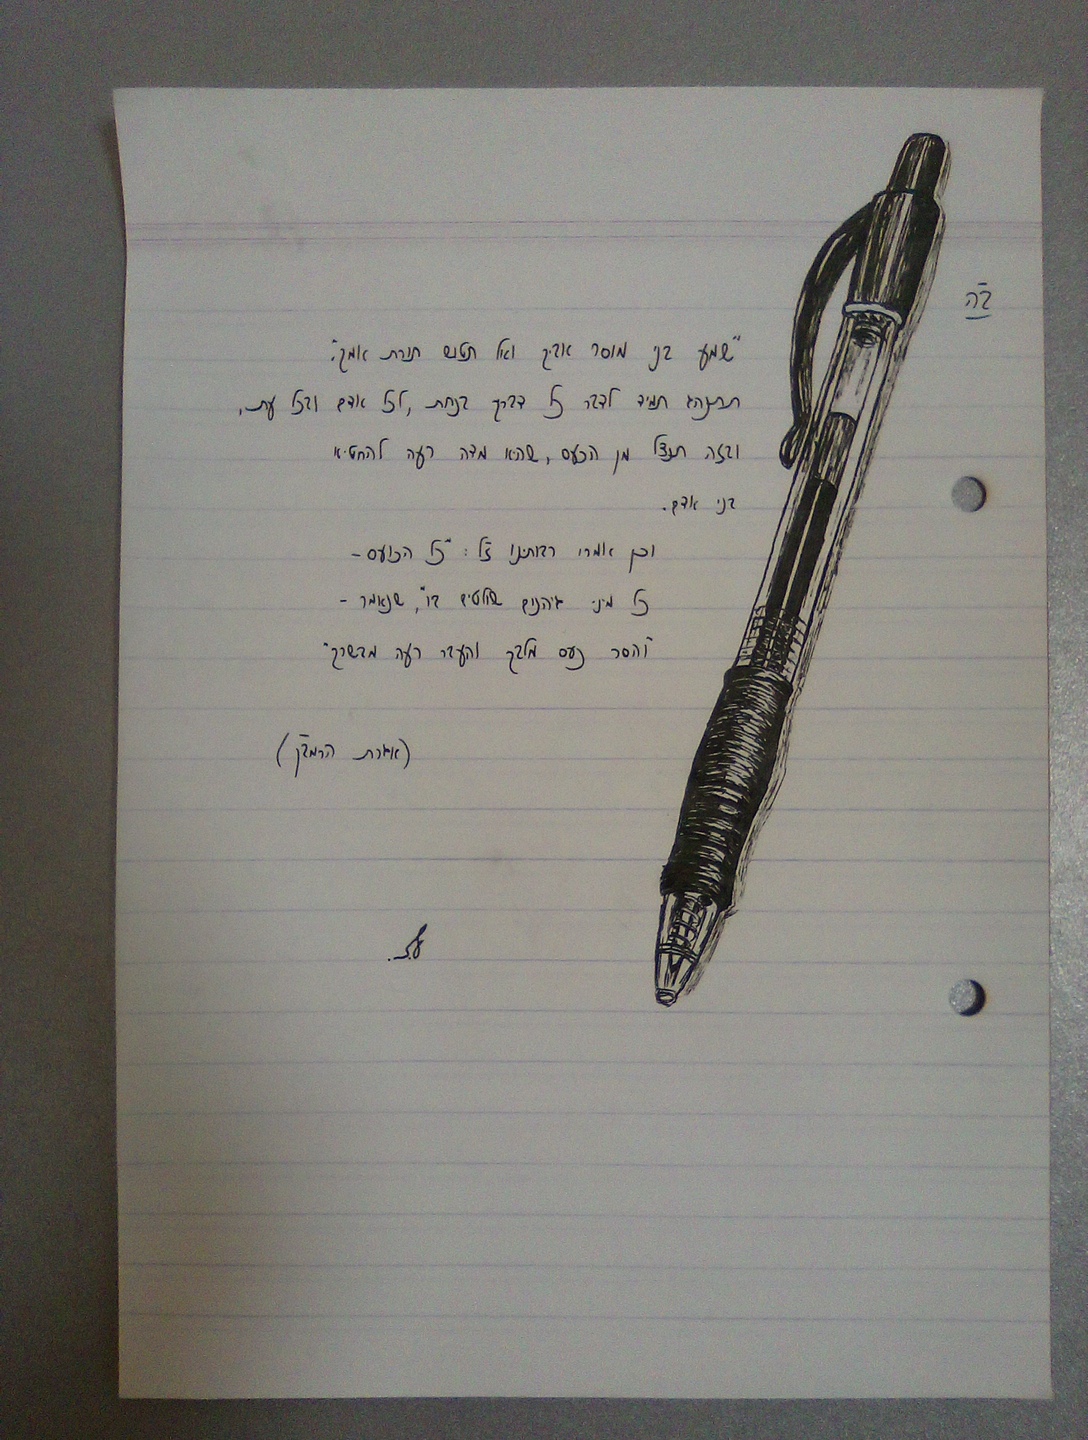 ב"ה
"שמע בני מוסר אביך ואל תטוש תורת אמך".
תתנהג תמיד לדבר כל דבריך בנחת, לכל אדם ובכל עת,
ובזה תנצל מן הכעס, שהיא מדה רעה להחטיא
בני אדם.
וכן אמרו רבותינו ז"ל: "כל הכועס –
כל מיני גיהנום שולטים בו", שנאמר –
"והסר כעס מלבך והעבר רעה מבשרך"
(אגרת הרמב"ן)